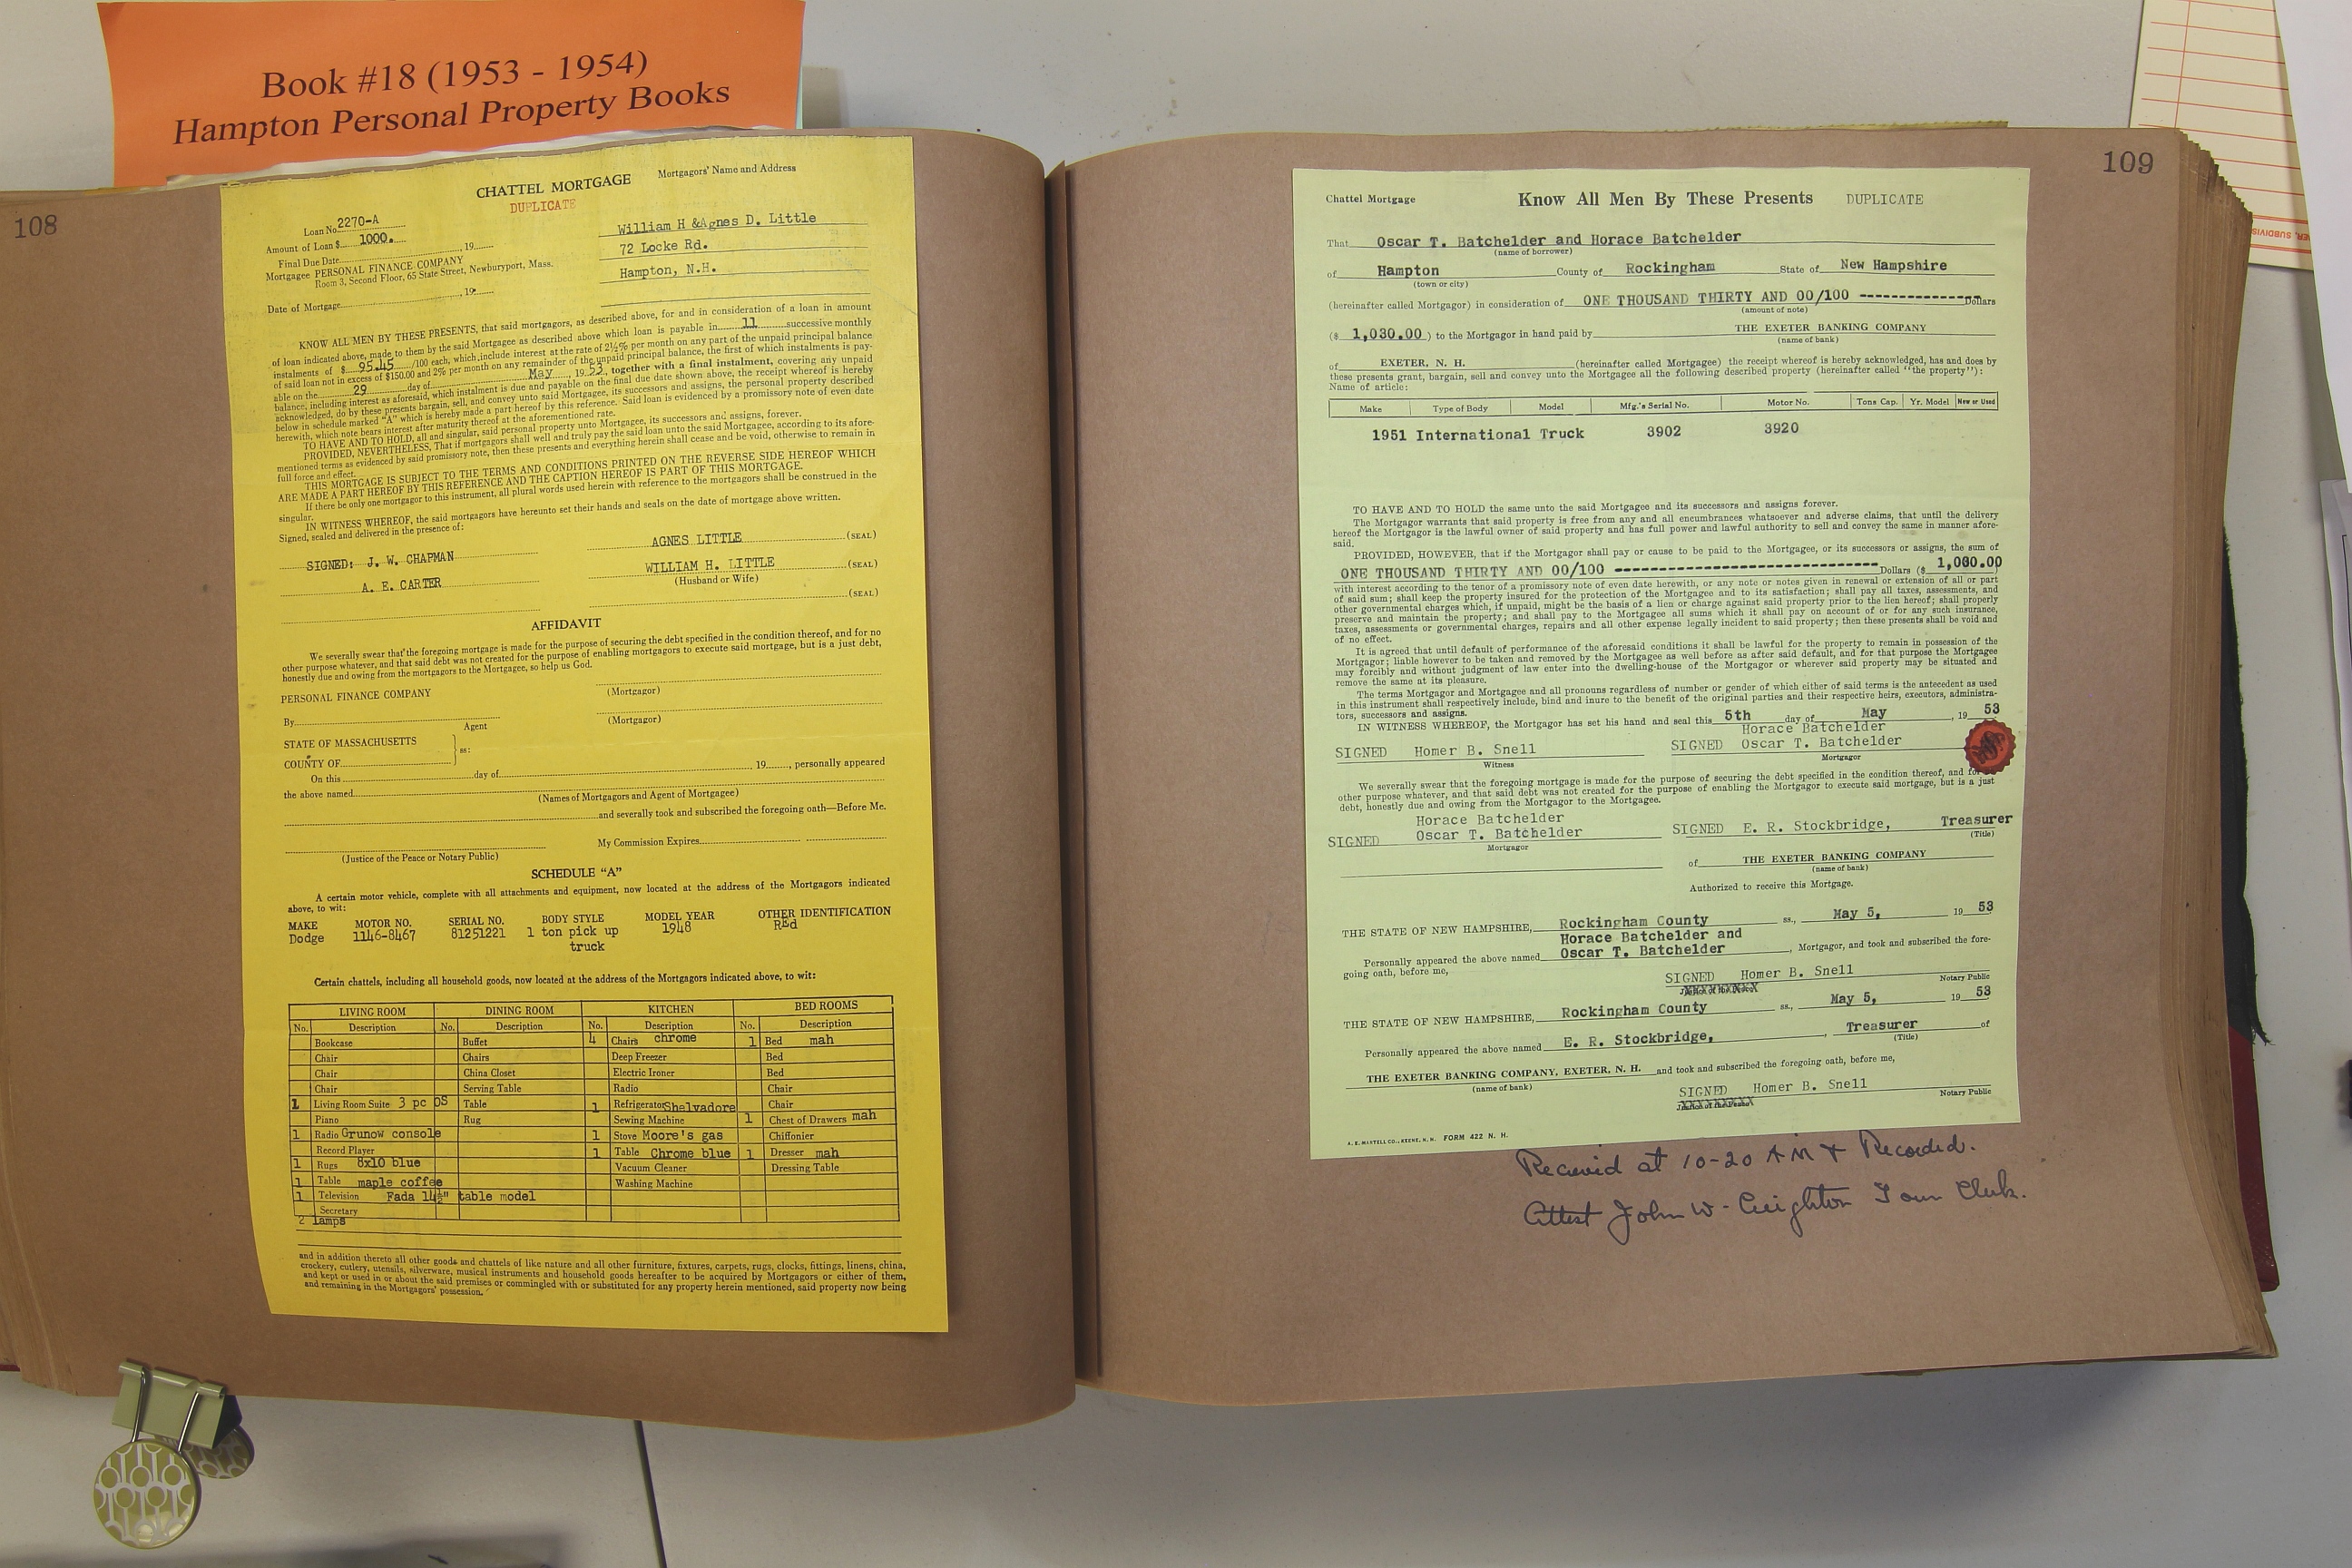 Book #18 (1953 - 1954)
Hampton Personal Property Books
108
CHATTEL MORTGAGE
DUPLICATE
Mortgagors' Name and Address
Loan No. 2270-A
Amount of Loan $ 1000.
Final Due Date , 19
Mortgagee PERSONAL FINANCE COMPANY
Room 3, Second Floor, 65 State Street, Newburyport, Mass.
Date of Mortgage , 19
William H &Agnes D. Little
72 Locke Rd.
Hampton, N.H.
KNOW ALL MEN BY THESE PRESENTS, that said mortgagors, as described above, for and in consideration of a loan in amount
of loan indicated above, made to them by the said Mortgagee as described above which loan is payable in 11 successive monthly
instalments of $ 95.45 /100 each, which include interest at the rate of 2½% per month on any part of the unpaid principal balance
of said loan not in excess of $150.00 and 2% per month on any remainder of the unpaid principal balance, the first of which instalments is pay-
able on the 29 day of May , 19 53, together with a final instalment, covering any unpaid
balance, including interest as aforesaid, which instalment is due and payable on the final due date shown above, the receipt whereof is hereby
acknowledged, do by these presents bargain, sell, and convey unto said Mortgagee, its successors and assigns, the personal property described
below in schedule marked "A" which is hereby made a part hereof by this reference. Said loan is evidenced by a promissory note of even date
herewith, which note bears interest after maturity thereof at the aforementioned rate.
TO HAVE AND TO HOLD, all and singular, said personal property unto Mortgagee, its successors and assigns, forever.
PROVIDED, NEVERTHELESS, That if mortgagors shall well and truly pay the said loan unto the said Mortgagee, according to its afore-
mentioned terms as evidenced by said promissory note, then these presents and everything herein shall cease and be void, otherwise to remain in
full force and effect.
THIS MORTGAGE IS SUBJECT TO THE TERMS AND CONDITIONS PRINTED ON THE REVERSE SIDE HEREOF WHICH
ARE MADE A PART HEREOF BY THIS REFERENCE AND THE CAPTION HEREOF IS PART OF THIS MORTGAGE.
If there be only one mortgagor to this instrument, all plural words used herein with reference to the mortgagors shall be construed in the
singular.
IN WITNESS WHEREOF, the said mortgagors have hereunto set their hands and seals on the date of mortgage above written.
Signed, sealed and delivered in the presence of:
SIGNED: J. W. CHAPMAN AGNES LITTLE (SEAL)
A. E. CARTER WILLIAM H. LITTLE (SEAL)
(Husband or Wife)
(SEAL)
AFFIDAVIT
We severally swear that the foregoing mortgage is made for the purpose of securing the debt specified in the condition thereof, and for no
other purpose whatever, and that said debt was not created for the purpose of enabling mortgagors to execute said mortgage, but is a just debt,
honestly due and owing from the mortgagors to the Mortgagee, so help us God.
PERSONAL FINANCE COMPANY
(Mortgagor)
By
Agent
(Mortgagor)
STATE OF MASSACHUSETTS
COUNTY OF ss:
On this day of 19 , personally appeared
the above named
(Names of Mortgagors and Agent of Mortgagee)
and severally took and subscribed the foregoing oath—Before Me.
My Commission Expires
(Justice of the Peace or Notary Public)
SCHEDULE "A"
A certain motor vehicle, complete with all attachments and equipment, now located at the address of the Mortgagors indicated
above, to wit:
MAKE MOTOR NO. SERIAL NO. BODY STYLE MODEL YEAR OTHER IDENTIFICATION
Dodge 1146-8467 81251221 1 ton pick up 1948 REd
truck
Certain chattels, including all household goods, now located at the address of the Mortgagors indicated above, to wit:
LIVING ROOM DINING ROOM KITCHEN BED ROOMS
No. Description No. Description No. Description No. Description
Bookcase Buffet 4 Chairs chrome 1 Bed mah
Chair Chairs Deep Freezer Bed
Chair China Closet Electric Ironer Bed
Chair Serving Table Radio Chair
1 Living Room Suite 3 pc ps Table 1 Refrigerator Shelvadore Chair
Piano Rug Sewing Machine 1 Chest of Drawers mah
1 Radio Grunow console 1 Stove Moore's gas Chiffonier
Record Player 1 Table Chrome blue 1 Dresser mah
1 Rugs 8x10 blue Vacuum Cleaner Dressing Table
1 Table maple coffee Washing Machine
1 Television Fada 14½" table model
Secretary
2 lamps
and in addition thereto all other goods and chattels of like nature and all other furniture, fixtures, carpets, rugs, clocks, fittings, linens, china,
crockery, cutlery, utensils, silverware, musical instruments and household goods hereafter to be acquired by Mortgagors or either of them,
and kept or used in or about the said premises or commingled with or substituted for any property herein mentioned, said property now being
and remaining in the Mortgagors' possession.
109
Chattel Mortgage Know All Men By These Presents DUPLICATE
That Oscar T. Batchelder and Horace Batchelder
(name of borrower)
of Hampton County of Rockingham State of New Hampshire
(town or city)
(hereinafter called Mortgagor) in consideration of ONE THOUSAND THIRTY AND 00/100 --------------- Dollars
(amount of note)
($ 1,030.00 ) to the Mortgagor in hand paid by THE EXETER BANKING COMPANY
(name of bank)
of EXETER, N. H. (hereinafter called Mortgagee) the receipt whereof is hereby acknowledged, has and does by
these presents grant, bargain, sell and convey unto the Mortgagee all the following described property (hereinafter called "the property"):
Name of article:
Make Type of Body Model Mfg.'s Serial No. Motor No. Tons Cap. Yr. Model New or Used
1951 International Truck 3902 3920
TO HAVE AND TO HOLD the same unto the said Mortgagee and its successors and assigns forever.
The Mortgagor warrants that said property is free from any and all encumbrances whatsoever and adverse claims, that until the delivery
hereof the Mortgagor is the lawful owner of said property and has full power and lawful authority to sell and convey the same in manner afore-
said.
PROVIDED, HOWEVER, that if the Mortgagor shall pay or cause to be paid to the Mortgagee, or its successors or assigns, the sum of
ONE THOUSAND THIRTY AND 00/100 ---------------------------- Dollars ($ 1,030.00)
with interest according to the tenor of a promissory note of even date herewith, or any note or notes given in renewal or extension of all or part
of said sum; shall keep the property insured for the protection of the Mortgagee and to its satisfaction; shall pay all taxes, assessments, and
other governmental charges which, if unpaid, might be the basis of a lien or charge against said property prior to the lien hereof; shall properly
preserve and maintain the property; and shall pay to the Mortgagee all sums which it shall pay on account of or for any such insurance,
taxes, assessments or governmental charges, repairs and all other expense legally incident to said property; then these presents shall be void and
of no effect.
It is agreed that until default of performance of the aforesaid conditions it shall be lawful for the property to remain in possession of the
Mortgagor; liable however to be taken and removed by the Mortgagee as well before as after said default, and for that purpose the Mortgagee
may forcibly and without judgment of law enter into the dwelling-house of the Mortgagor or wherever said property may be situated and
remove the same at its pleasure.
The terms Mortgagor and Mortgagee and all pronouns regardless of number or gender of which either of said terms is the antecedent as used
in this instrument shall respectively include, bind and inure to the benefit of the original parties and their respective heirs, executors, administra-
tors, successors and assigns.
IN WITNESS WHEREOF, the Mortgagor has set his hand and seal this 5th day of May , 19 53
Horace Batchelder
SIGNED Homer B. Snell SIGNED Oscar T. Batchelder
Witness Mortgagor
We severally swear that the foregoing mortgage is made for the purpose of securing the debt specified in the condition thereof, and for
other purpose whatever, and that said debt was not created for the purpose of enabling the Mortgagor to execute said mortgage, but is a just
debt, honestly due and owing from the Mortgagor to the Mortgagee.
Horace Batchelder
SIGNED Oscar T. Batchelder SIGNED E. R. Stockbridge, Treasurer
Mortgagor (Title)
of THE EXETER BANKING COMPANY
(name of bank)
Authorized to receive this Mortgage.
THE STATE OF NEW HAMPSHIRE, Rockingham County ss., May 5, 19 53
Horace Batchelder and
Personally appeared the above named Oscar T. Batchelder , Mortgagor, and took and subscribed the fore-
going oath, before me,
SIGNED Homer B. Snell
Notary Public
THE STATE OF NEW HAMPSHIRE, Rockingham County ss., May 5, 19 53
Personally appeared the above named E. R. Stockbridge, , Treasurer of
(Title)
THE EXETER BANKING COMPANY, EXETER, N. H. and took and subscribed the foregoing oath, before me,
(name of bank)
SIGNED Homer B. Snell
Notary Public
A. E. MARTELL CO., KEENE, N. H. FORM 422 N. H.
Received at 10-20 AM & Recorded.
Attest John W. Creighton Town Clerk.